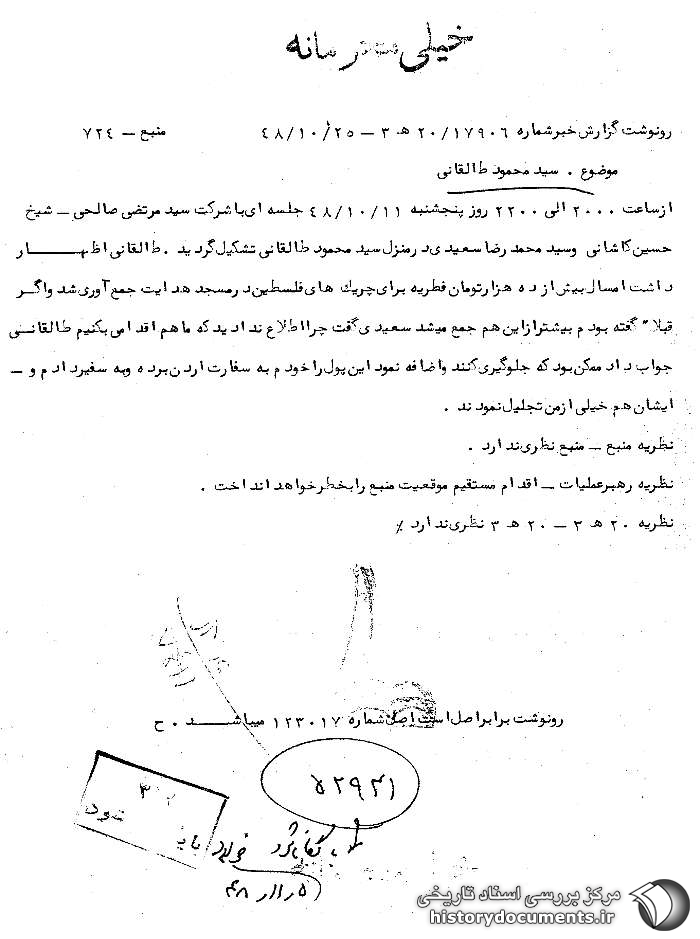 خیلی محرمانه
رونوشت گزارش خبر شماره ۲۰/۱۷۹۰۶ هـ ۳ – ۴۸/۱۰/۲۵ منبع – ۷۲۴
موضوع . سید محمود طالقانی
از ساعت ۲۰۰۰ الی ۲۲۰۰ روز پنجشنبه ۴۸/۱۰/۱۱ جلسه ای با شرکت سید مرتضی صالحی – شیخ
حسین کاشانی وسید محمد رضا سعیدی در منزل سید محمود طالقانی تشکیل گردید . طالقانی اظهار
داشت امسال بیش از ده هزار تومان فطریه برای چریک های فلسطین در مسجد هدایت جمع آوری شد واگر
قبلا" گفته بودم بیشتر از این هم جمع میشد سعیدی گفت چرا اطلاع ندادید که ما هم اقدامی بکنیم طالقانی
جواب داد ممکن بود که جلوگیری کنند واضافه نمود این پول را خودم به سفارت اردن برده وبه سفیر دادم و –
ایشان هم خیلی از من تجلیل نمودند .
نظریه منبع – منبع نظری ندارد .
نظریه رهبر عملیات – اقدام مستقیم موقعیت منبع را بخطر خواهد انداخت .
نظریه ۲۰ هـ ۳ – ۲۰ هـ ۳ نظری ندارد ٪
رونوشت برابر اصل است اصل شماره ۱۲۳۰۱۷ میباشد . ح
شود
۴۸
مرکز بررسی اسناد تاریخی
historydocuments.ir